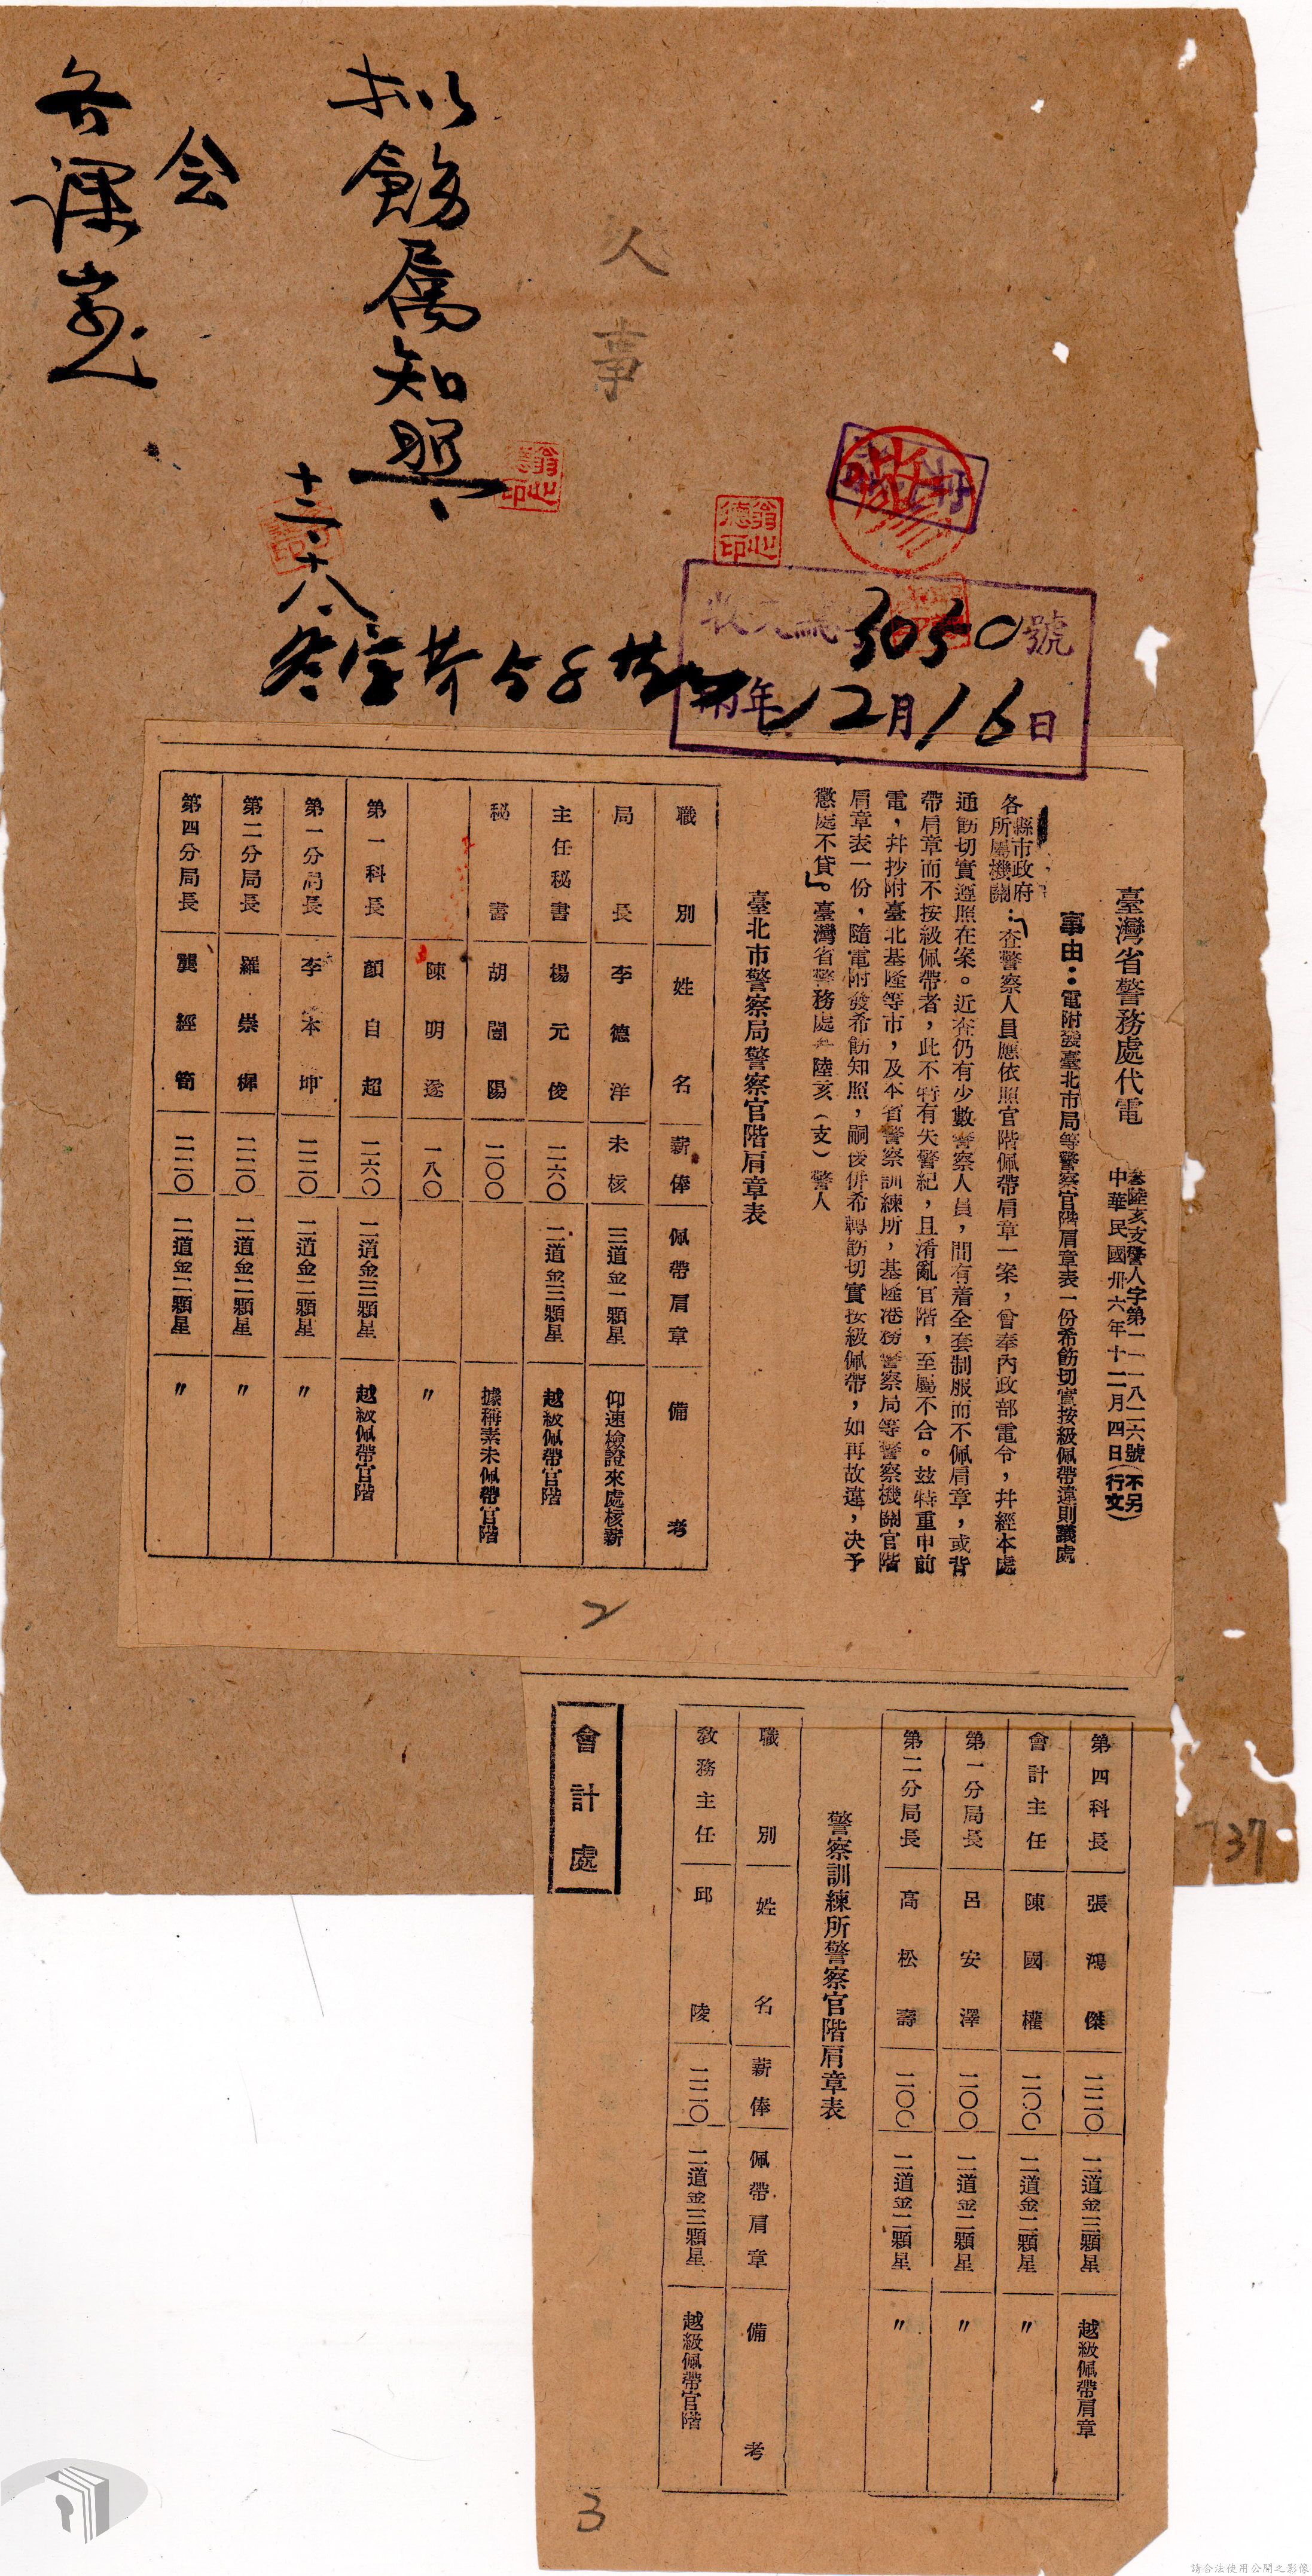 人事
擬飭屬知照
十二、十八
会
各課室
3050號
年12月16日
臺灣省警務處代電
叁陸亥支警人字第一一八二六號(不另行文)
中華民國卅六年十二月四日
事由:電附發臺北市局等警察官階肩章表一份希飭切實按級佩帶違則議處
各縣市政府
所屬機關
:「查警察人員應依照官階佩帶肩章一案,曾奉內政部電令,幷經本處
通飭切實遵照在案。近查仍有少數警察人員,間有着全套制服而不佩肩章,或背
帶肩章而不按級佩帶者,此不特有失警紀,且淆亂官階,至屬不合。茲特重申前
電,幷抄附臺北基隆等市,及本省警察訓練所,基隆港務警察局等警察機關官階
肩章表一份,隨電附發希飭知照,嗣後併希轉飭切實按級佩帶,如再故違,决予
懲處不貸」。臺灣省警務處 陸亥(支)警人
臺北市警察局警察官階肩章表
職別 姓名 薪俸 佩帶肩章 備考
局長 李德洋 未核 三道金一顆星 仰速檢證來處核薪
主任秘書 楊元俊 二六〇 二道金三顆星 越級佩帶官階
秘書 胡閶陽 二〇〇 據稱素未佩帶官階
陳明遂 一八〇 〃
第一科長 顏自超 二六〇 二道金三顆星 越級佩帶官階
第一分局長 李本坤 二二〇 二道金二顆星 〃
第二分局長 羅崇樨 二二〇 二道金二顆星 〃
第四分局長 龔經筍 二二〇 二道金二顆星 〃
2
第四科長 張鴻傑 二二〇 二道金三顆星 越級佩帶肩章
會計主任 陳國權 二〇〇 二道金二顆星 〃
第一分局長 呂安澤 二〇〇 二道金二顆星 〃
第二分局長 高松壽 二〇〇 二道金二顆星 〃
警察訓練所警察官階肩章表
職別 姓名 薪俸 佩帶肩章 備考
教務主任 邱陵 二二〇 二道金三顆星 越級佩帶官階
會計處
3
37
請合法使用公開之影像